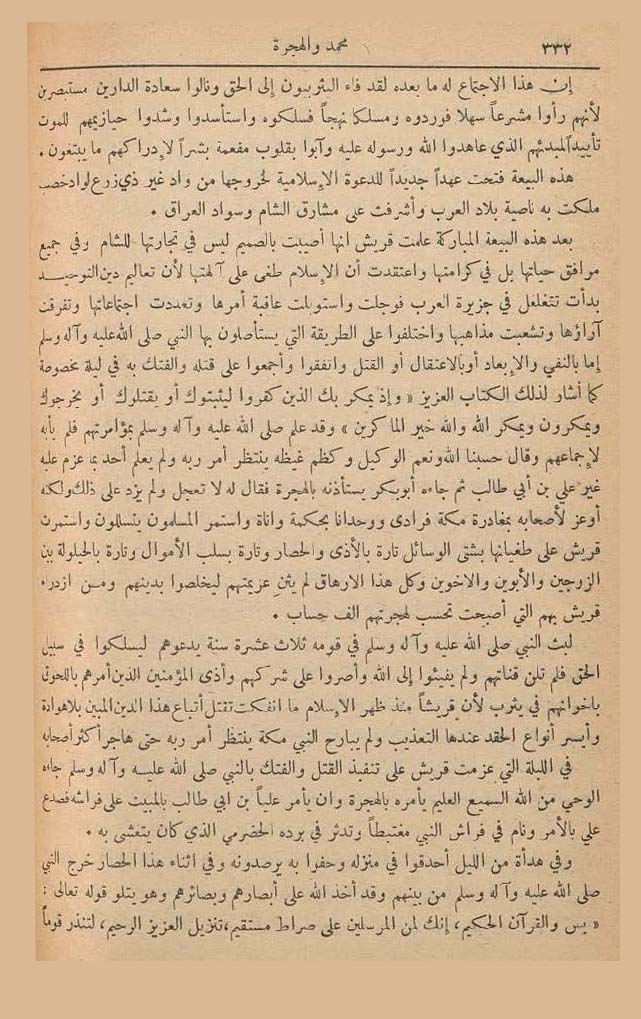 ٣٣٢
محمد والهجرة
إن هذا الاجتماع له ما بعده لقد فاء اليثربيون إلى الحق ونالوا سعادة الدارين مستبصرين
لأنهم رأوا مشرعاً سهلا فوردوه ومسلكا نهجاً فسلكوه واستأسدوا وشدوا حيازيمهم للموت
تأييداً لمبدئهم الذي عاهدوا الله ورسوله عليه وآبوا بقلوب مفعمة بشراً لإدراكهم ما يبتغون .
هذه البيعة فتحت عهداً جديداً للدعوة الإسلامية لخروجها من واد غير ذي زرع لواد خصب
ملكت به ناصية بلاد العرب وأشرفت على مشارق الشام وسواد العراق .
بعد هذه البيعة المباركة علمت قريش انها أصيبت بالصميم ليس في تجارتها للشام وفي جميع
مرافق حياتها بل في كرامتها واعتقدت أن الإسلام طغى على آلهتها لأن تعاليم دين التوحيد
بدأت تتغلغل في جزيرة العرب فوجلت واستوبلت عاقبة أمرها وتعددت اجتماعاتها وتفرقت
آراؤها وتشعبت مذاهبها واختلفوا على الطريقة التي يستأصلون بها النبي صلى الله عليه وآله وسلم
إما بالنفي والإبعاد أو بالاعتقال أو القتل واتفقوا وأجمعوا على قتله والفتك به في ليلة مخصوصة
كما أشار لذلك الكتاب العزيز « وإذ يمكر بك الذين كفروا ليثبتوك أو يقتلوك أو يخرجوك
ويمكرون ويمكر الله والله خير الماكرين » وقد علم صلى الله عليه وآله وسلم بمؤامرتهم فلم يأبه
لإجماعهم وقال حسبنا الله ونعم الوكيل وكظم غيظه ينتظر أمر ربه ولم يعلم أحد بما عزم عليه
غير علي بن أبي طالب ثم جاءه أبو بكر يستأذنه بالهجرة فقال له لا تعجل ولم يزد على ذلك ولكنه
أوعز لأصحابه بمغادرة مكة فرادى ووحدانا بحكمة واناة واستمر المسلمون يتسللون واستمرت
قريش على طغيانها بشتى الوسائل تارة بالأذى والحصار وتارة بسلب الأموال وتارة بالحيلولة بين
الزوجين والأبوين والاخوين وكل هذا الارهاق لم يثن عزيمتهم ليخلصوا بدينهم ومن ازدراء
قريش بهم التي أصبحت تحسب لهجرتهم الف حساب .
لبث النبي صلى الله عليه وآله وسلم في قومه ثلاث عشرة سنة يدعوهم ليسلكوا في سبيل
الحق فلم تلن قناتهم ولم يفيئوا إلى الله وأصروا على شركهم وأذى المؤمنين الذين أمرهم باللحوق
باخوانهم في يثرب لأن قريشاً منذ ظهر الإسلام ما انفكت تقتل أتباع هذا الدين المبين بلا هوادة
وأيسر أنواع الحقد عندها التعذيب ولم يبارح النبي مكة ينتظر أمر ربه حتى هاجر أكثر أصحابه
في الليلة التي عزمت قريش على تنفيذ القتل والفتك بالنبي صلى الله عليه وآله وسلم جاءه
الوحي من الله السميع العليم يأمره بالهجرة وان يأمر علياً بن ابي طالب بالمبيت على فراشه فصدع
علي بالأمر ونام في فراش النبي مغتبطاً وتدثر في برده الحضرمي الذي كان يتغشى به .
وفي هدأة من الليل أحدقوا في منزله وحفوا به يرصدونه وفي اثناء هذا الحصار خرج النبي
صلى الله عليه وآله وسلم من بينهم وقد أخذ الله على أبصارهم وبصائرهم وهو يتلو قوله تعالى :
« يس والقرآن الحكيم ، إنك لمن المرسلين على صراط مستقيم ، تنزيل العزيز الرحيم ، لتنذر قوماً